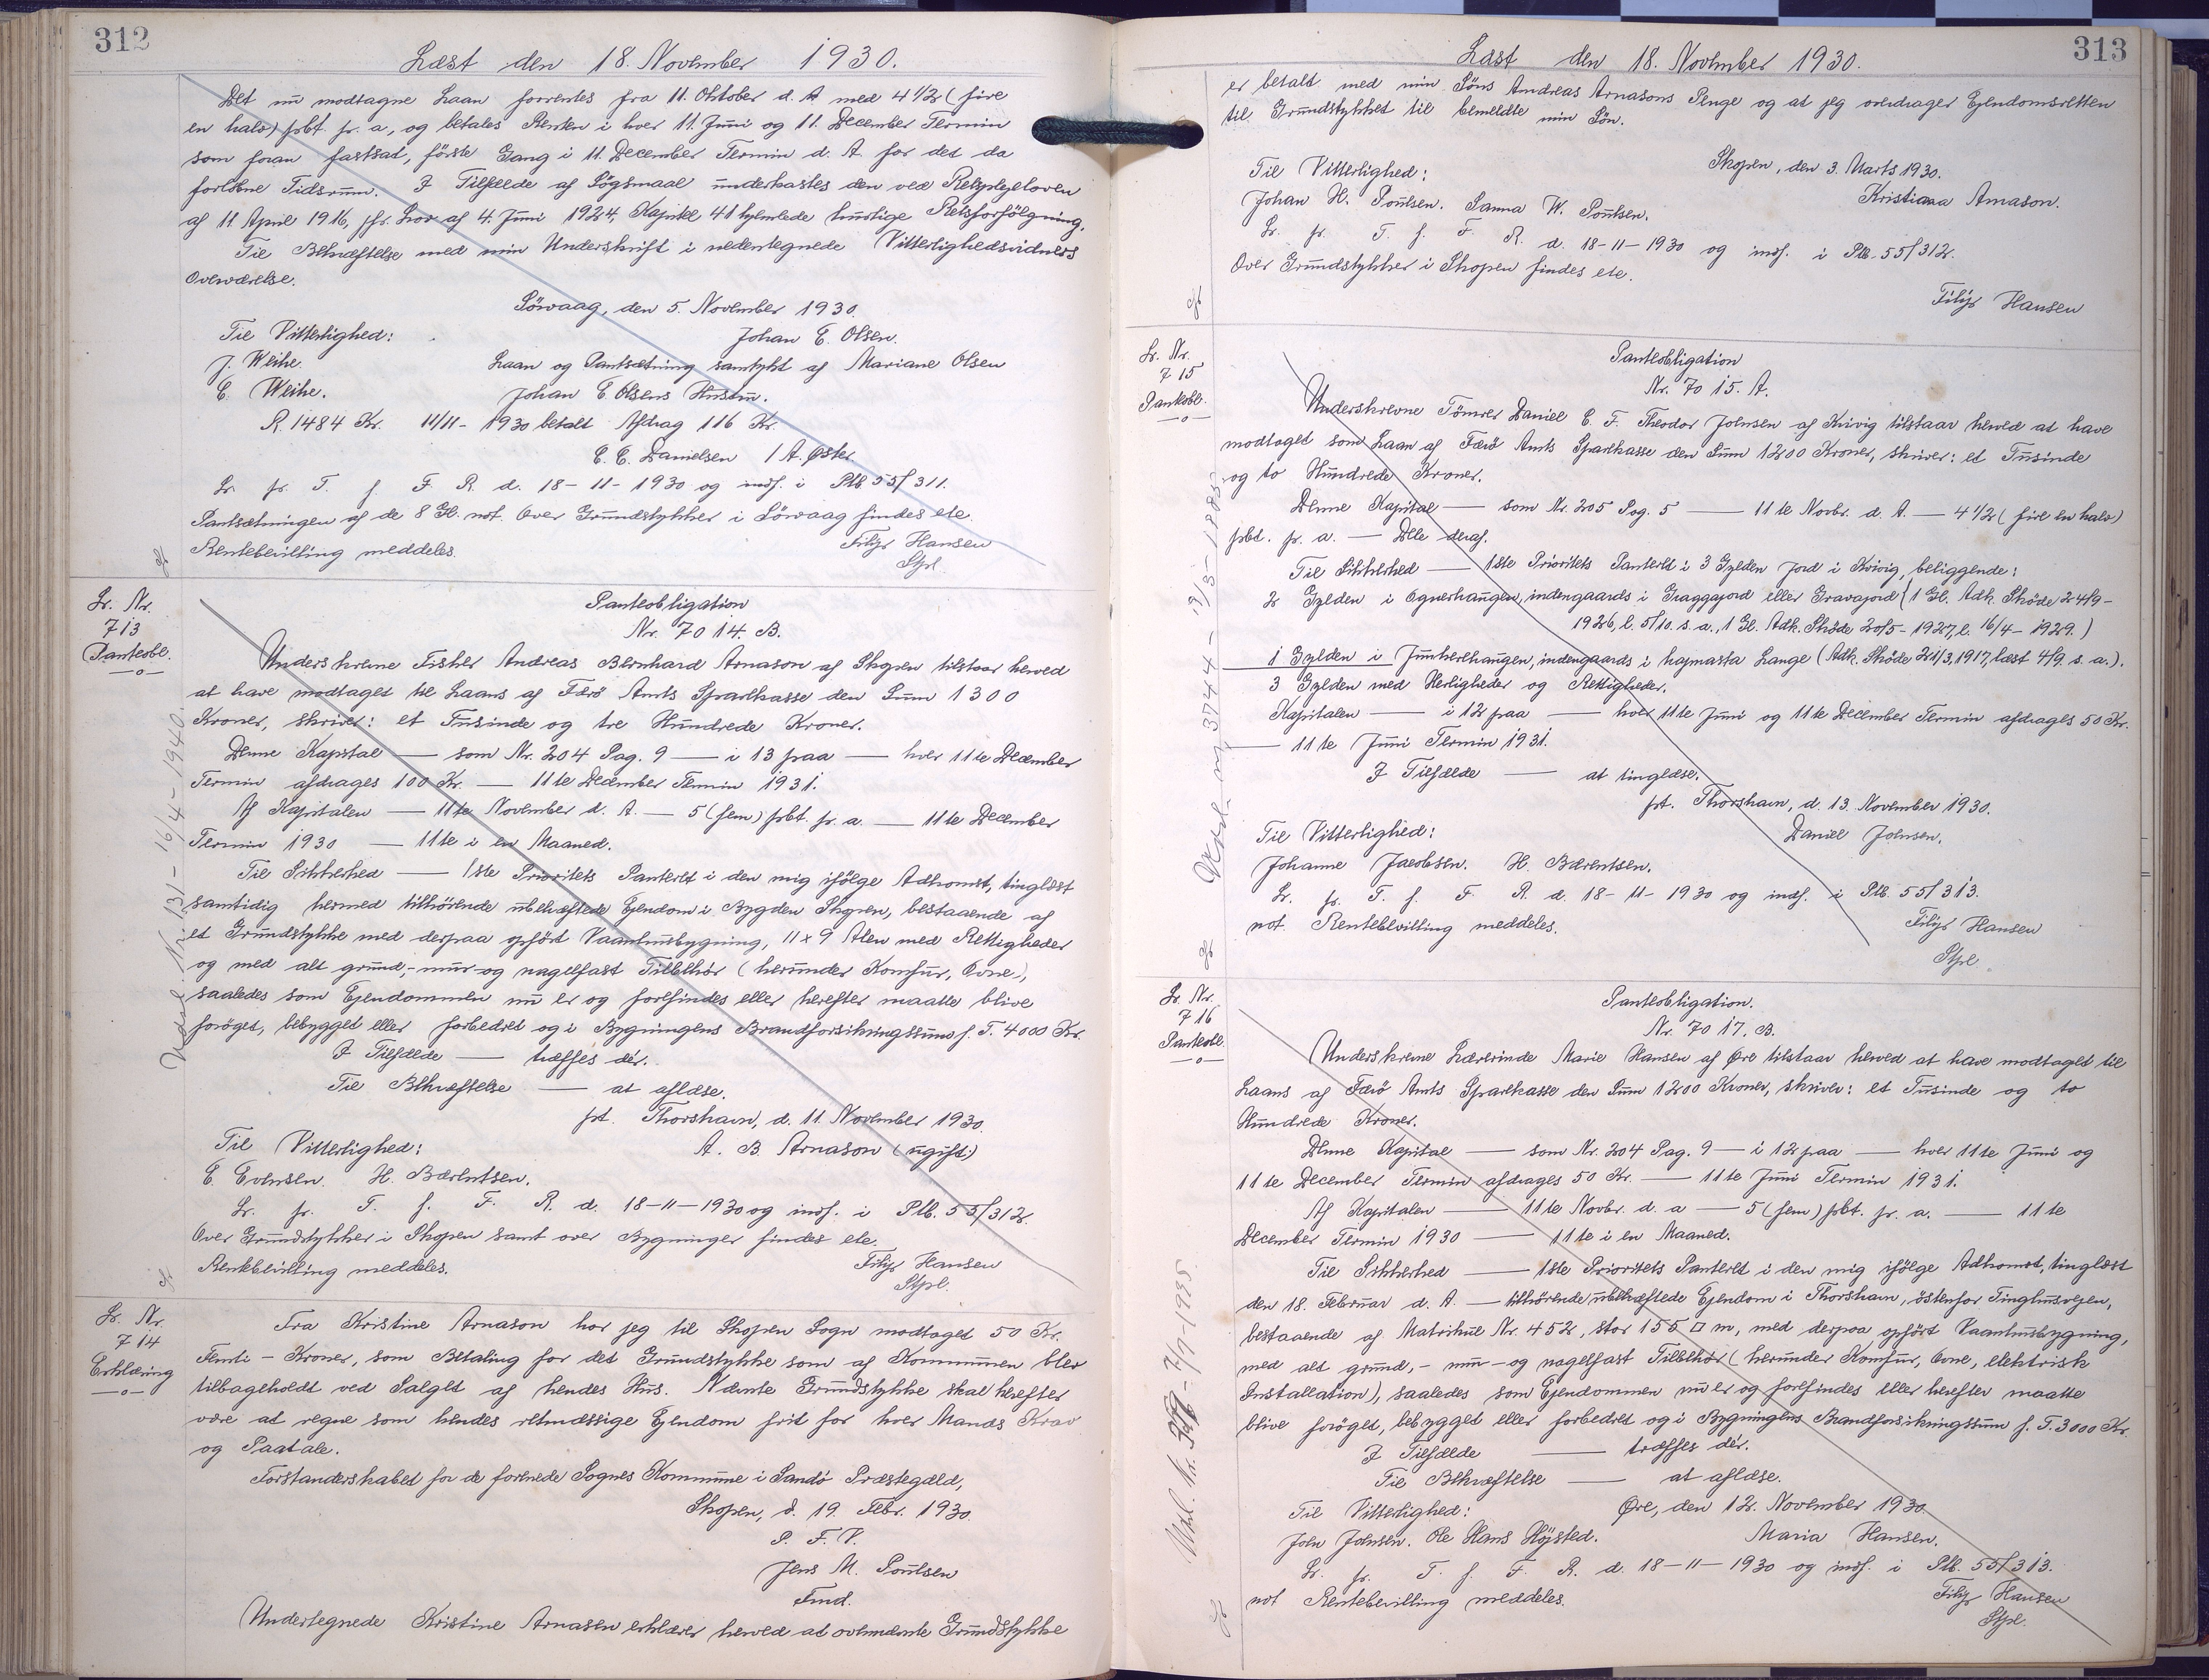 312
Læst den 18. November 1930.
Det nu modtagne Laan forrentes fra 11. Oktober d. A. med 4 1/2 (fire
en halv) pbt. pr. a., og betales Renten i hver 11. Juni og 11. December Termin
som foran fastsat, første Gang i 11. December Termin d. A. for det da
forløbne Tidsrum. I Tilfælde af Søgsmaal underkastes den ved Retsplejeloven
af 11. April 1916, jfr. Lov af 4. Juni 1924, Kapitel 41 hjemlede hurtige Retsforfølgning.
Til Bekræftelse med min Underskrift i nedentegnede Vitterlighedsvidners
Overværelse.
Sörvaag, den 5. November 1930.
Til Vitterlighed: Johan E. Olsen.
J. Weihe. Laan og Pantsætning samtykt af Mariane Olsen
E. Weihe. Johan E Olsens Hustru.
R. 1484 Kr. 11/11 - 1930 betalt Afdrag 116 Kr.
E. E. Danielsen / A. Øster
Lr. pr. T. f. F. R. d. 18-11-1930 og indf. i Ptb. 55/311.
Pantsætningen af de 8 Gl. not. Over Grundstykker i Sörvaag findes ete.
Rentebevilling meddeles. Filip Hansen
Stpl.
Lr. Nr.
713
Panteobl.
Panteobligation
Nr. 7014. B.
Underskrevne Fisker Andreas Bernhard Arnason af Skopen tilstaar herved
at have modtaget til Laans af Færø Amts Sparekasse den Sum 1300
Kroner, skriver: et Tusinde og tre Hundrede Kroner.
Denne Kapital — som Nr. 204 Pag. 9 — i 13 paa — hver 11te December
Termin afdrages 100 Kr. — 11te December Termin 1931.
Af Kapitalen — 11te November d. A. — 5 (fem) pbt. pr. a. — 11te December
Termin 1930 — 11te i en Maaned.
Til Sikkerhed — 1ste Prioritets Panteret i den mig ifølge Adkomst, tinglæst
samtidig hermed tilhørende ubehæftede Ejendom i Bygden Skopen, bestaaende af
et Grundstykke med derpaa opført Vaanhusbygning, 11 x 9 Alen med Rettigheder
og med alt grund-, mur- og nagelfast Tilbehør (herunder Komfur, Ovne),
saaledes som Ejendommen nu er og forefindes eller herefter maatte blive
forøget, bebygget eller forbedret og i Bygningens Brandforsikringssum f. T. 4000 Kr.
I Tilfælde — træffes dér.
Til Bekræftelse — at aflæse.
pt. Thorshavn, d. 11. November 1930.
Til Vitterlighed: A. B. Arnason (ugift)
E. Evensen. H. Bærentsen.
Lr. pr. T. f. F. R. d. 18-11-1930 og indf. i Ptb. 55/312.
Over Grundstykker i Skopen samt over Bygninger findes ete.
Rentebevilling meddeles. Filip Hansen
Stpl.
Udsl. Nr. 131 - 16/4 - 1940.
Lr. Nr.
714
Erklæring
Fra Kristine Arnason har jeg til Skopen Sogn modtaget 50 Kr.
Femti - Kroner, som Betaling for det Grundstykke som af Kommunen blev
tilbageholdt ved Salget af hendes Hus. Nævnte Grundstykke skal herefter
være at regne som hendes retmæssige Ejendom frit for hver Mands Krav
og Paatale.
Forstanderskabet for de forenede Sognes Kommune i Sandö Præstegæld,
Skopen, d. 19. Febr. 1930.
P. F. V.
Jens M. Poulsen
Fmd.
Undertegnede Kristine Arnasen erklærer herved at ovennævnte Grundstykke
313
Læst den 18. November 1930.
er betalt med min Søns Andreas Arnasons Penge og at jeg overdrager Ejendomsretten
til Grundstykket til bemeldte min Søn.
Skopen, den 3. Marts 1930.
Til Vitterlighed: Kristiana Arnason.
Johan H. Poulsen. Sanna W. Poulsen.
Lr. pr. T. f. F. R. d. 18-11-1930 og indf. i Ptb. 55/312.
Over Grundstykker i Skopen findes ete.
Filip Hansen
Lr. Nr.
715
Panteobl.
Panteobligation
Nr. 7015. A.
Underskrevne Tömrer Daniel E. F. Theodor Johnsen af Kvivig tilstaar herved at have
modtaget som Laan af Færø Amts Sparekasse den Sum 1200 Kroner, skriver: et Tusinde
og to Hundrede Kroner.
Denne Kapital — som Nr. 205 Pag. 5 — 11te Novbr. d. A. — 4 1/2 (fire en halv)
pbt. pr. a. — Dele deraf.
Til Sikkerhed — 1ste Prioritets Panteret i 3 Gylden Jord i Kvivig, beliggende:
2 Gylden i Ognerhaugen, indengaards i Graggajord eller Gravajord (1 Gl. Adk. Skøde 24/9 -
1926, l. 5/10. s. a., 1 Gl. Adk. Skøde 20/5 - 1927, l. 16/4 - 1929.)
1 Gylden i Junkerhaugen, indengaards i hajmasta Lange (Adk. Skøde 21/3, 1917, læst 4/9. s. a.).
3 Gylden med Herligheder og Rettigheder.
Kapitalen — i 12 paa — hver 11te Juni og 11te December Termin afdrages 50 Kr.
— 11te Juni Termin 1931.
I Tilfælde — at tinglæse.
pt. Thorshavn, d. 13. November 1930.
Til Vitterlighed: Daniel Johnsen.
Johanne Jacobsen. H. Bærentsen.
Lr. pr. T. f. F. R. d. 18-11-1930 og indf. i Ptb. 55/313.
not. Rentebevilling meddeles. Filip Hansen
Stpl.
Lr. Nr.
716
Panteobl.
Panteobligation.
Nr. 7017. B.
Underskrevne Lærerinde Marie Hansen af Øre tilstaar herved at have modtaget til
Laans af Færø Amts Sparekasse den Sum 1200 Kroner, skriver: et Tusinde og to
Hundrede Kroner.
Denne Kapital — som Nr. 204 Pag. 9 — i 12 paa — hver 11te Juni og
11te December Termin afdrages 50 Kr. — 11te Juni Termin 1931.
Af Kapitalen — 11te Novbr. d. a — 5 (fem) pbt. pr. a. — 11te
December Termin 1930 — 11te i en Maaned.
Til Sikkerhed — 1ste Prioritets Panteret i den mig ifølge Adkomst, tinglæst
den 18. Februar d. A. — tilhørende, ubehæftede Ejendom i Thorshavn, östenfor Tinghusvejen,
bestaaende af Matrikul Nr. 452, stor 155 □ m, med derpaa opført Vaanhusbygning,
med alt grund,- mur- og nagelfast Tilbehör (herunder Komfur, Ovne, elektrisk
Installation), saaledes som Ejendommen nu er og forefindes eller herefter maatte
blive forøget, bebygget eller forbedret og i Bygningens Brandforsikringssum f. T. 3000 Kr.
I Tilfælde — træffes dér.
Til Bekræftelse — at aflæse.
Til Vitterlighed: Øre, den 12. November 1930.
John Johnsen. Ole Hans Höjsted. Maria Hansen.
Lr. pr. T. f. F. R. d. 18-11-1930 og indf. i Ptb. 55/313.
not Rentebevilling meddeles. Filip Hansen
Stpl.